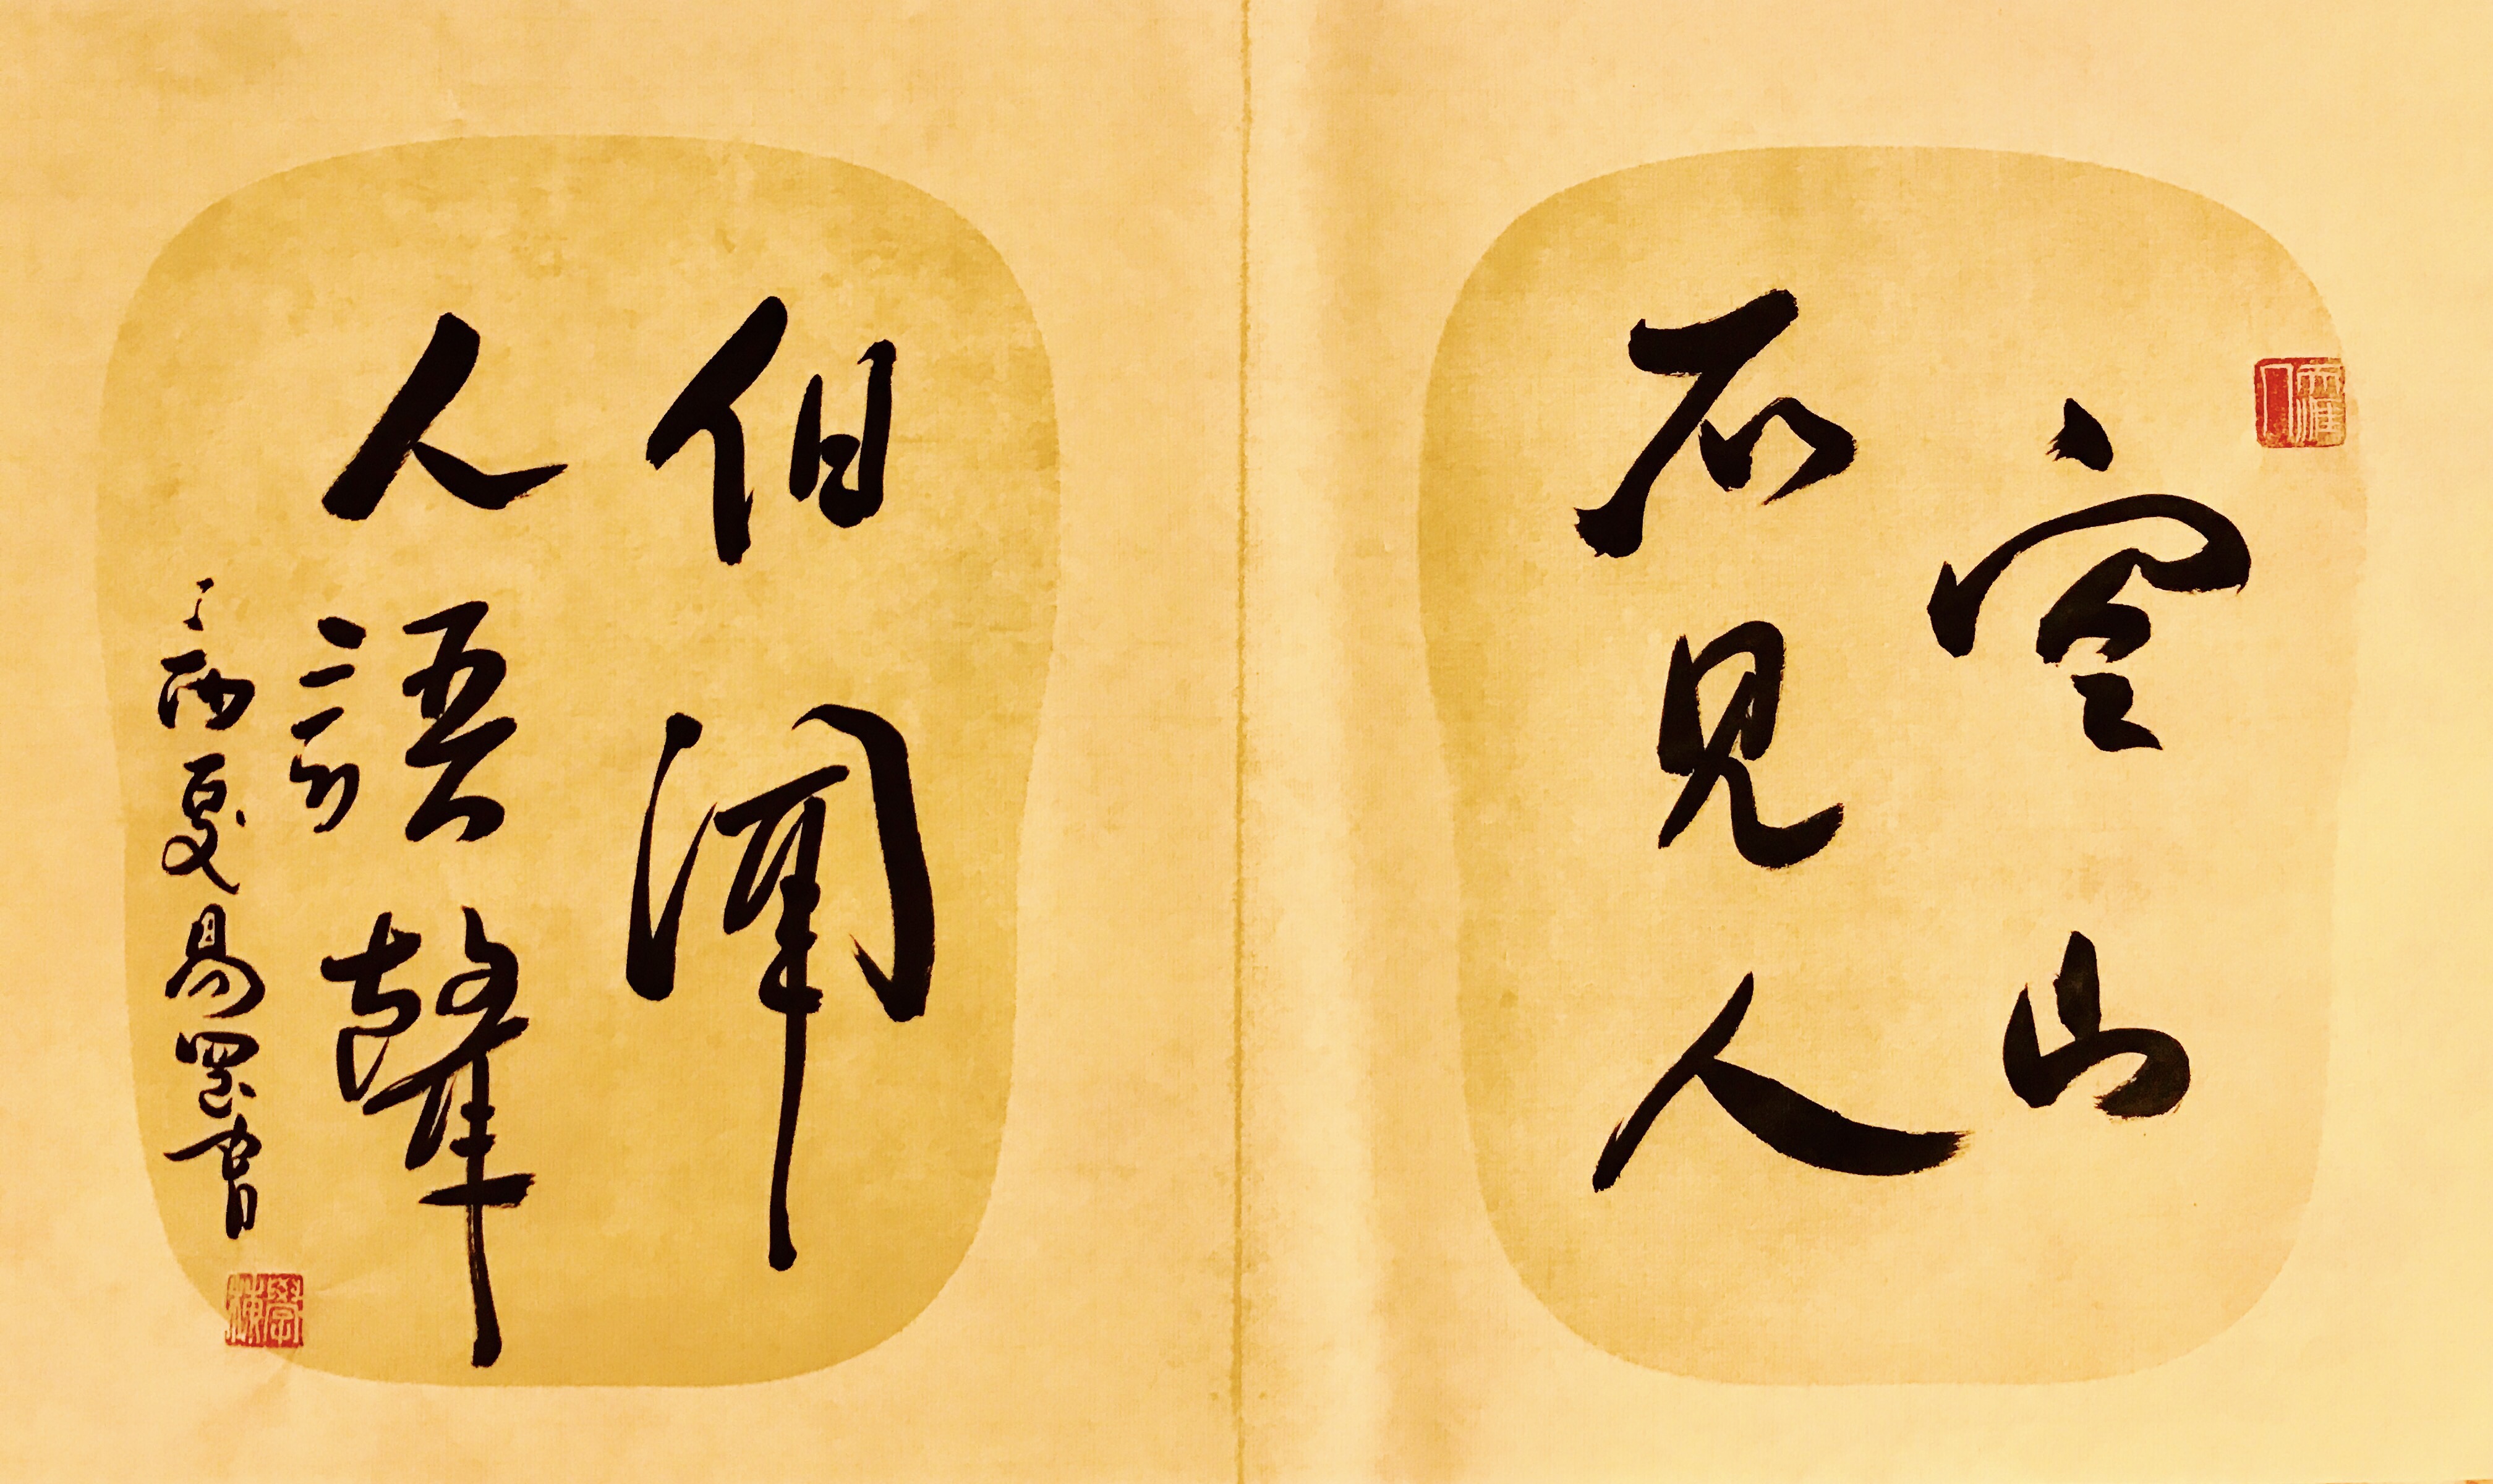 空山
不見人
但聞
人語聲
丁酉夏易墨書